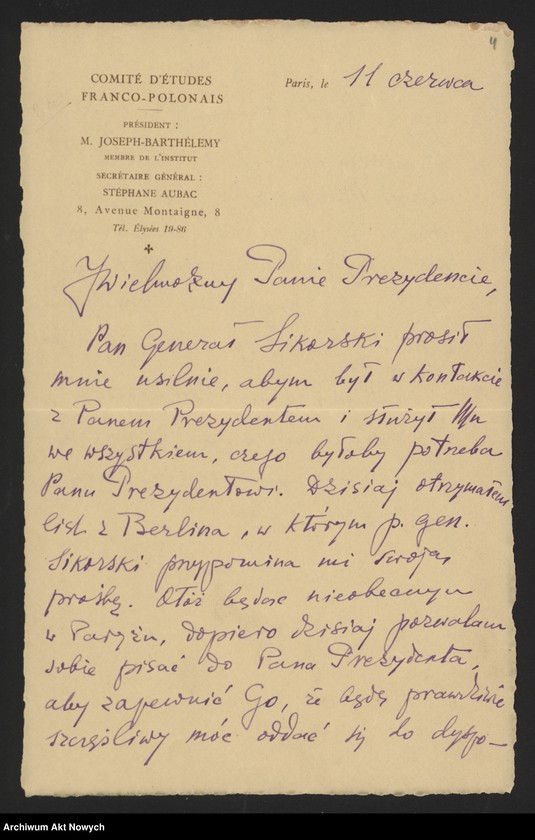 4
COMITÉ D'ÉTUDES
FRANCO-POLONAIS
PRÉSIDENT :
M. JOSEPH-BARTHÉLEMY
MEMBRE DE L'INSTITUT
SECRÉTAIRE GÉNÉRAL :
STÉPHANE AUBAC
8, Avenue Montaigne, 8
Tél. Élysées 19-86
Paris, le 11 czerwca
JWielmożny Panie Prezydencie,
Pan Generał Sikorski prosił
mnie usilnie, abym był w kontakcie
z Panem Prezydentem i służył Mu
we wszystkiem, czego byłoby potrzeba
Panu Prezydentowi. Dzisiaj otrzymałem
list z Berlina, w którym p. gen.
Sikorski przypomina mi swoją
prośbę. Otóż będąc nieobecnym
w Paryżu, dopiero dzisiaj pozwalam
sobie pisać do Pana Prezydenta,
aby zapewnić Go, że będę prawdziwie
szczęśliwy móc oddać się do dyspo-
Archiwum Akt Nowych